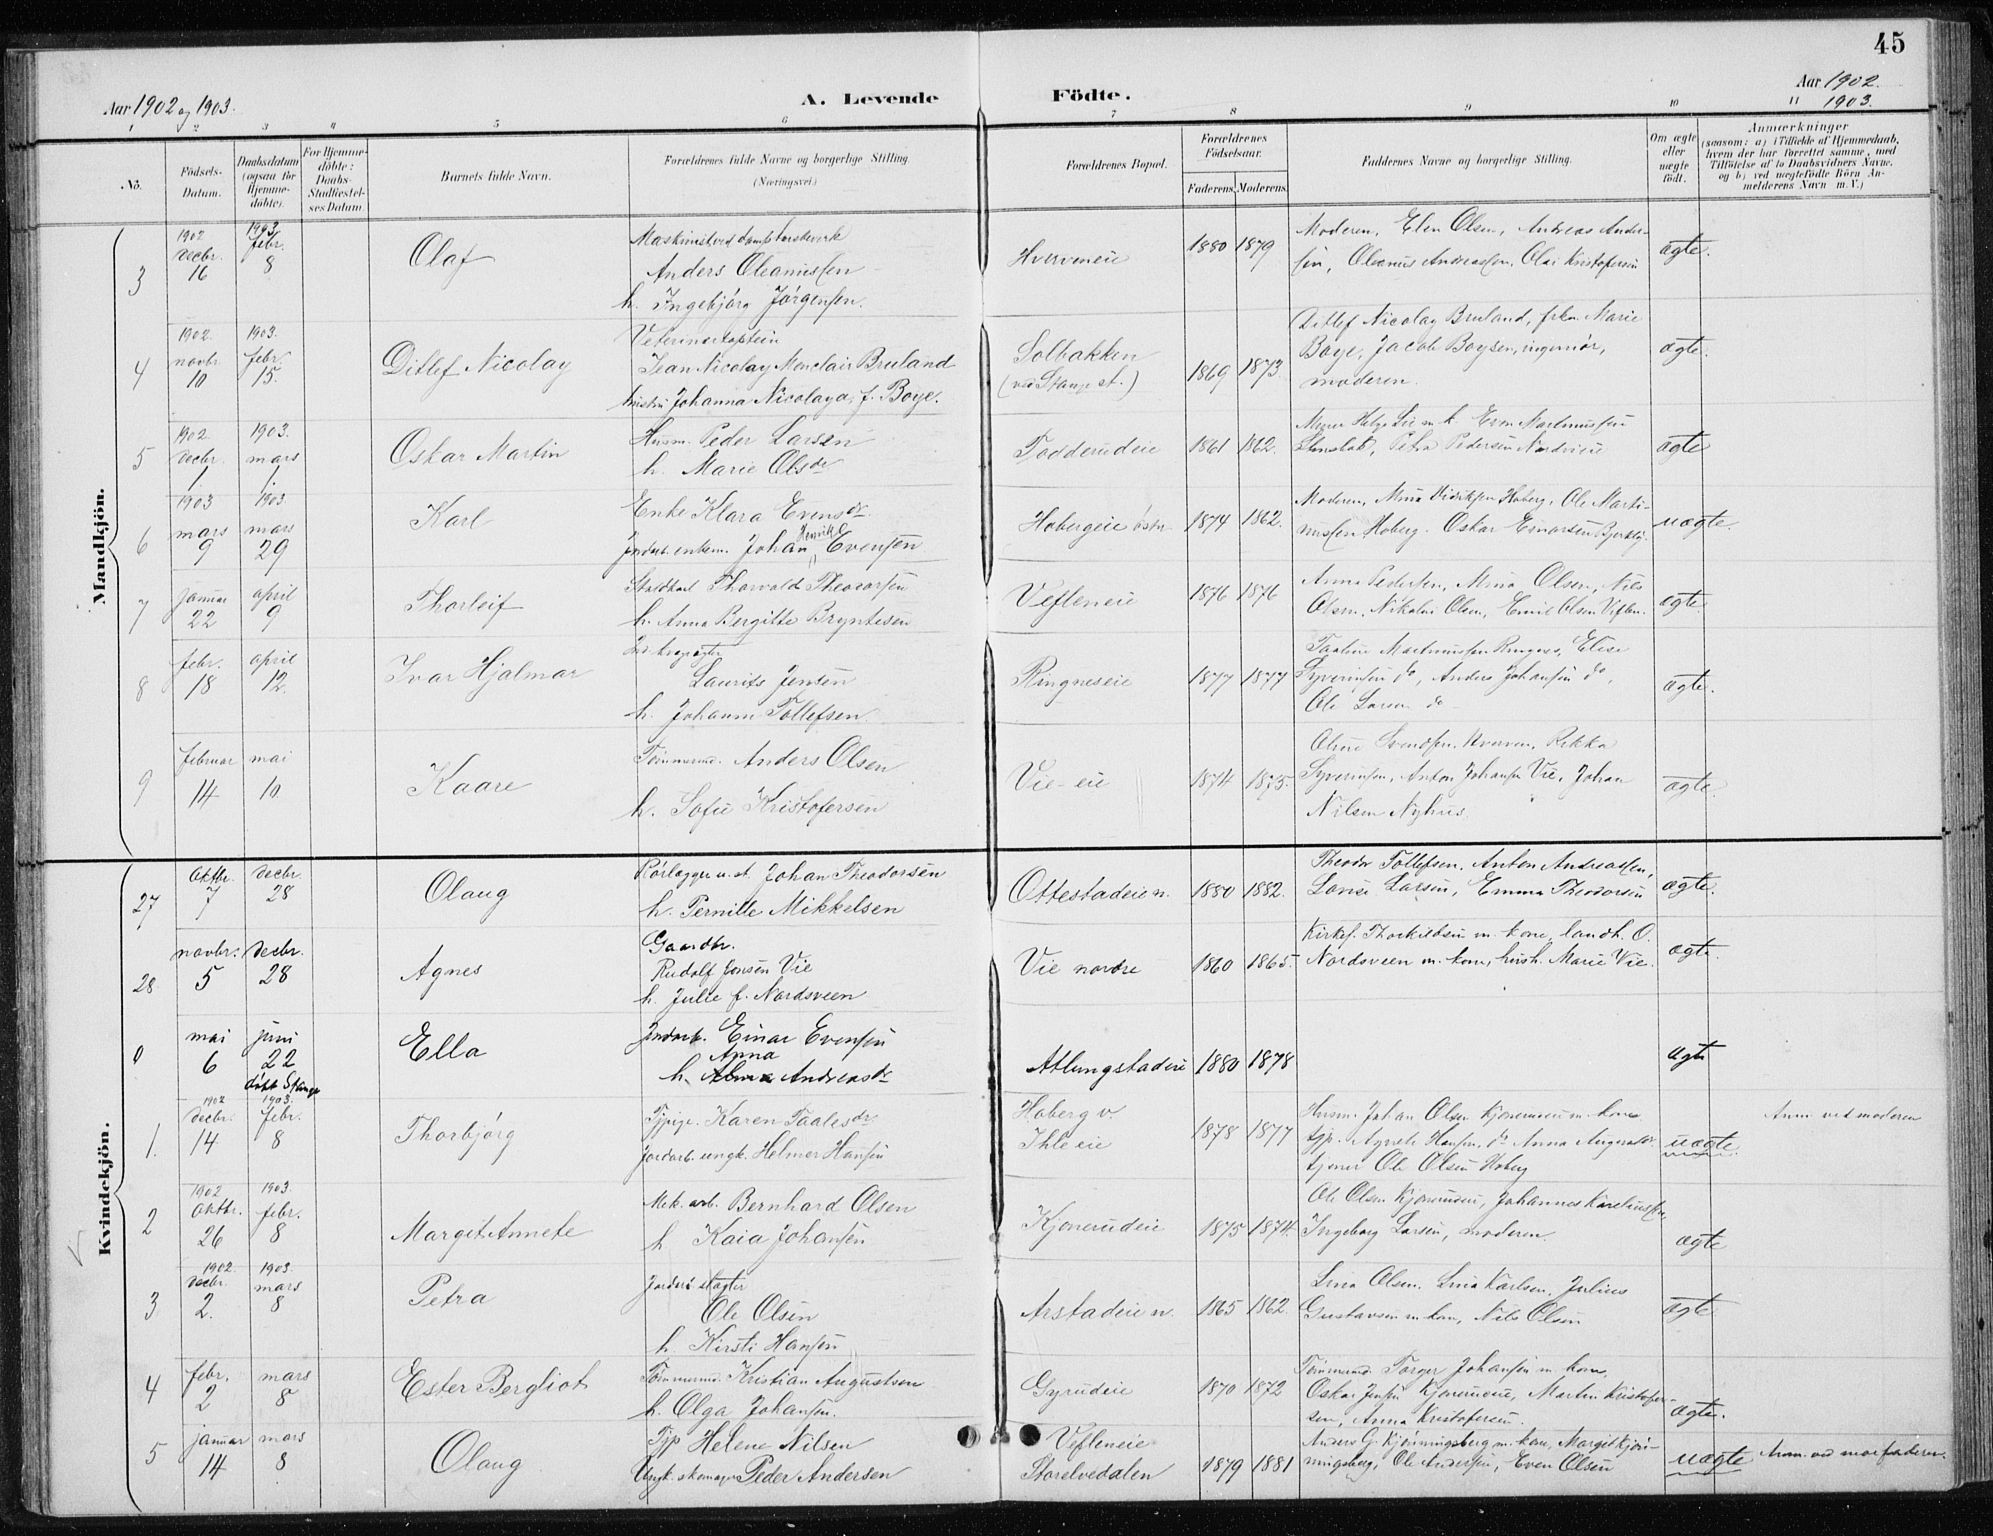 45
Aar 1902 og 1903.
A. Levende Födte.
Aar 1902.
1903.
1 2 3 4 5 6 7 8 9 10 11
No.
Födsels-Datum.
Daabsdatum (ogsaa for Hjemme-döbte).
For Hjemme-döbte: Daabs-Stadfæstel-ses Datum.
Barnets fulde Navn.
Forældrenes fulde Navne og borgerlige Stilling.
(Næringsvei.)
Forældrenes Bopæl.
Forældrenes Födselsaar.
Faderens. Moderens.
Faddernes Navne og borgerlige Stilling.
Om ægte eller uægte födt.
Anmærkninger
(saasom: a) i Tilfælde af Hjemmedaab, hvem der har forrettet samme, med Tilföielse af to Daabsvidners Navne, og b) ved uægtefödte Börn An-melderens Navn m. V.)
Mandkjön.
3
1902 decbr. 16
1903 febr. 8
Olaf
Maskinist ved damptærskeværk
Anders Oleanussen
h. Ingebjörg Jörgensen.
Hverveneie
1880 1879
Moderen, Elen Olsen, Andreas Ander-
sen, Oleanus Andreassen, Olai Kristofersen
ægte.
4
1902. novbr. 10
1903. febr. 15.
Ditlef Nicolay
Veterinærkaptein
Jean Nicolay Monclair Bruland
hustru Johanna Nicolaya, f. Boye.
Solbakken
(ved Stange st.)
1869 1873.
Ditlef Nicolay Bruland, frkn. Marie
Boye, Jacob Boysen, ingeniör,
moderen.
ægte.
5
1902 decbr. 1
1903. mars 1
Oskar Martin
Husm. Peder Larsen
h. Marie Olsdr
Todderudeie
1861 1862.
Lie m. k. Even Martinussen
Petra Pedersen Nordvieie
ægte
6
1903 mars 9
1903 mars 29
Karl
Enke Klara Evensdr.
Jordarb. enkem. Johan Henrik Evensen
Hobergeie östre.
1874 1862.
Moderen, Mina Hoberg, Ole Marti-
nussen Hoberg. Oskar Einarsen
uægte.
7
januar 22
april 9
Thorleif
Staldkarl Thorvald Theodorsen
h. Anna Bergitte Bryntesen
Vefleneie
1876 1876
Anna Pedersen, Mina Olsen, Nils
Olsen, Nikolai Olsen, Emil Olsen Veflen.
ægte.
8
febr. 18
april 12.
Ivar Hjalmar
Laurits Jensen
h. Johanne Tollefsen.
Ringneseie
1877 1877
Martinussen Ringnes, Elise
Syverinsen do, Anders Johansen do,
Ole Larsen do
ægte.
9
februar 14
mai 10
Kaare
Tömmermd. Anders Olsen
h. Sofie Kristofersen
Vie-eie
1874 1875.
Oline Svendsen Hverven, Rikka
Syverinsen, Anton Johansen Vie, Johan
Nilsen Nyhus.
ægte.
Kvindekjön.
27
oktbr. 7
decbr. 28
Olaug
Rörlægger u. st. Johan Theodorsen
h. Pernille Mikkelsen
Ottestadeie n.
1880 1882.
Theodor Tollefsen, Anton Andreassen,
Lovise Larsen, Emma Theodorsen
ægte.
28
novbr. 5
decbr. 28
Agnes
Gaardbr.
Rudolf Jensen Vie
h. Julie f. Nordsveen
Vie nordre
1860 1865.
Kirkes. Thorkildsen m. kone, landh. O.
Nordsveen m. kone, hush. Marie Vie.
ægte.
0
mai 6
juni 22
döbt Stange
Ella
Jordarb. Einar Evensen
Anna
h. Alma Andreasdr
Atlungstadeie
1880 1878
ægte
1.
1902 decbr. 14
1903. febr. 8
Thorbjörg
Tjpige. Karen Taalesdr.
Jordarb. ungk. Helmer Hansen
Hoberg v
Ihle eie
1878 1877
Husm. Johan Olsen Kjonerudeie m. kone
tjp. Agnete Hansen, do Anna
tjener Ole Olsen Hoberg
uægte.
Anm. ved moderen
2
1902 oktbr. 26
1903. febr. 8
Margit Annete
Mek. arb. Bernhard Olsen
h Kaia Johansen
Kjonerudeie
1875 1874.
Ole Olsen Kjonerudeie, Johannes Kareliussen,
Ingeborg Larsen, moderen.
ægte
3
1902. decbr. 2.
1903. mars 8
Petra
Ole Olsen
h. Kirsti Hansen
Arstadeie n.
1865 1862.
Lina Olsen, Lina Karlsen, Julius
Gustavsen m kone, Nils Olsen
ægte
4
febr. 2
mars 8
Ester Bergliot
Tömmermd. Kristian Augustsen
h. Olga Johansen.
Gyrudeie
1870 1872
Tömmermd. Torger Johansen m. kone,
Oskar Jensen Kjonerudeie, Martin Kristofer-
sen, Anna Kristofersen.
ægte.
5
januar 14
mars 8
Olaug
Tjp Helene Nilsen
Ungk. skomager Peder Andersen
Vefleneie
Storelvedalen
1879 1881
Anders G. Kjönningsberg m. kone, Margit Kjön-
ningsberg, Ole Andersen, Even Olsen
uægte
Anm. ved morfaderen.